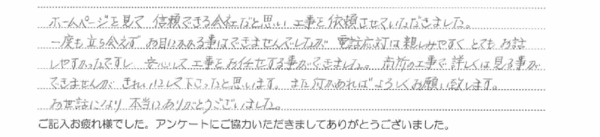 ホームページを見て 信頼できる会社だと思い 工事を依頼させていただきました。
一度も立ち会えず お目にかかる事はできませんでしたが 電話応対は親しみやすく とてもお話
しやすかったですし 安心して工事をお任せする事ができました。 高所の工事で 詳しくは見る事が
できませんが きれいにして下さったと思います。 また何かあれば よろしくお願い致します。
お世話になり 本当にありがとうございました。
ご記入お疲れ様でした。アンケートにご協力いただきましてありがとうございました。